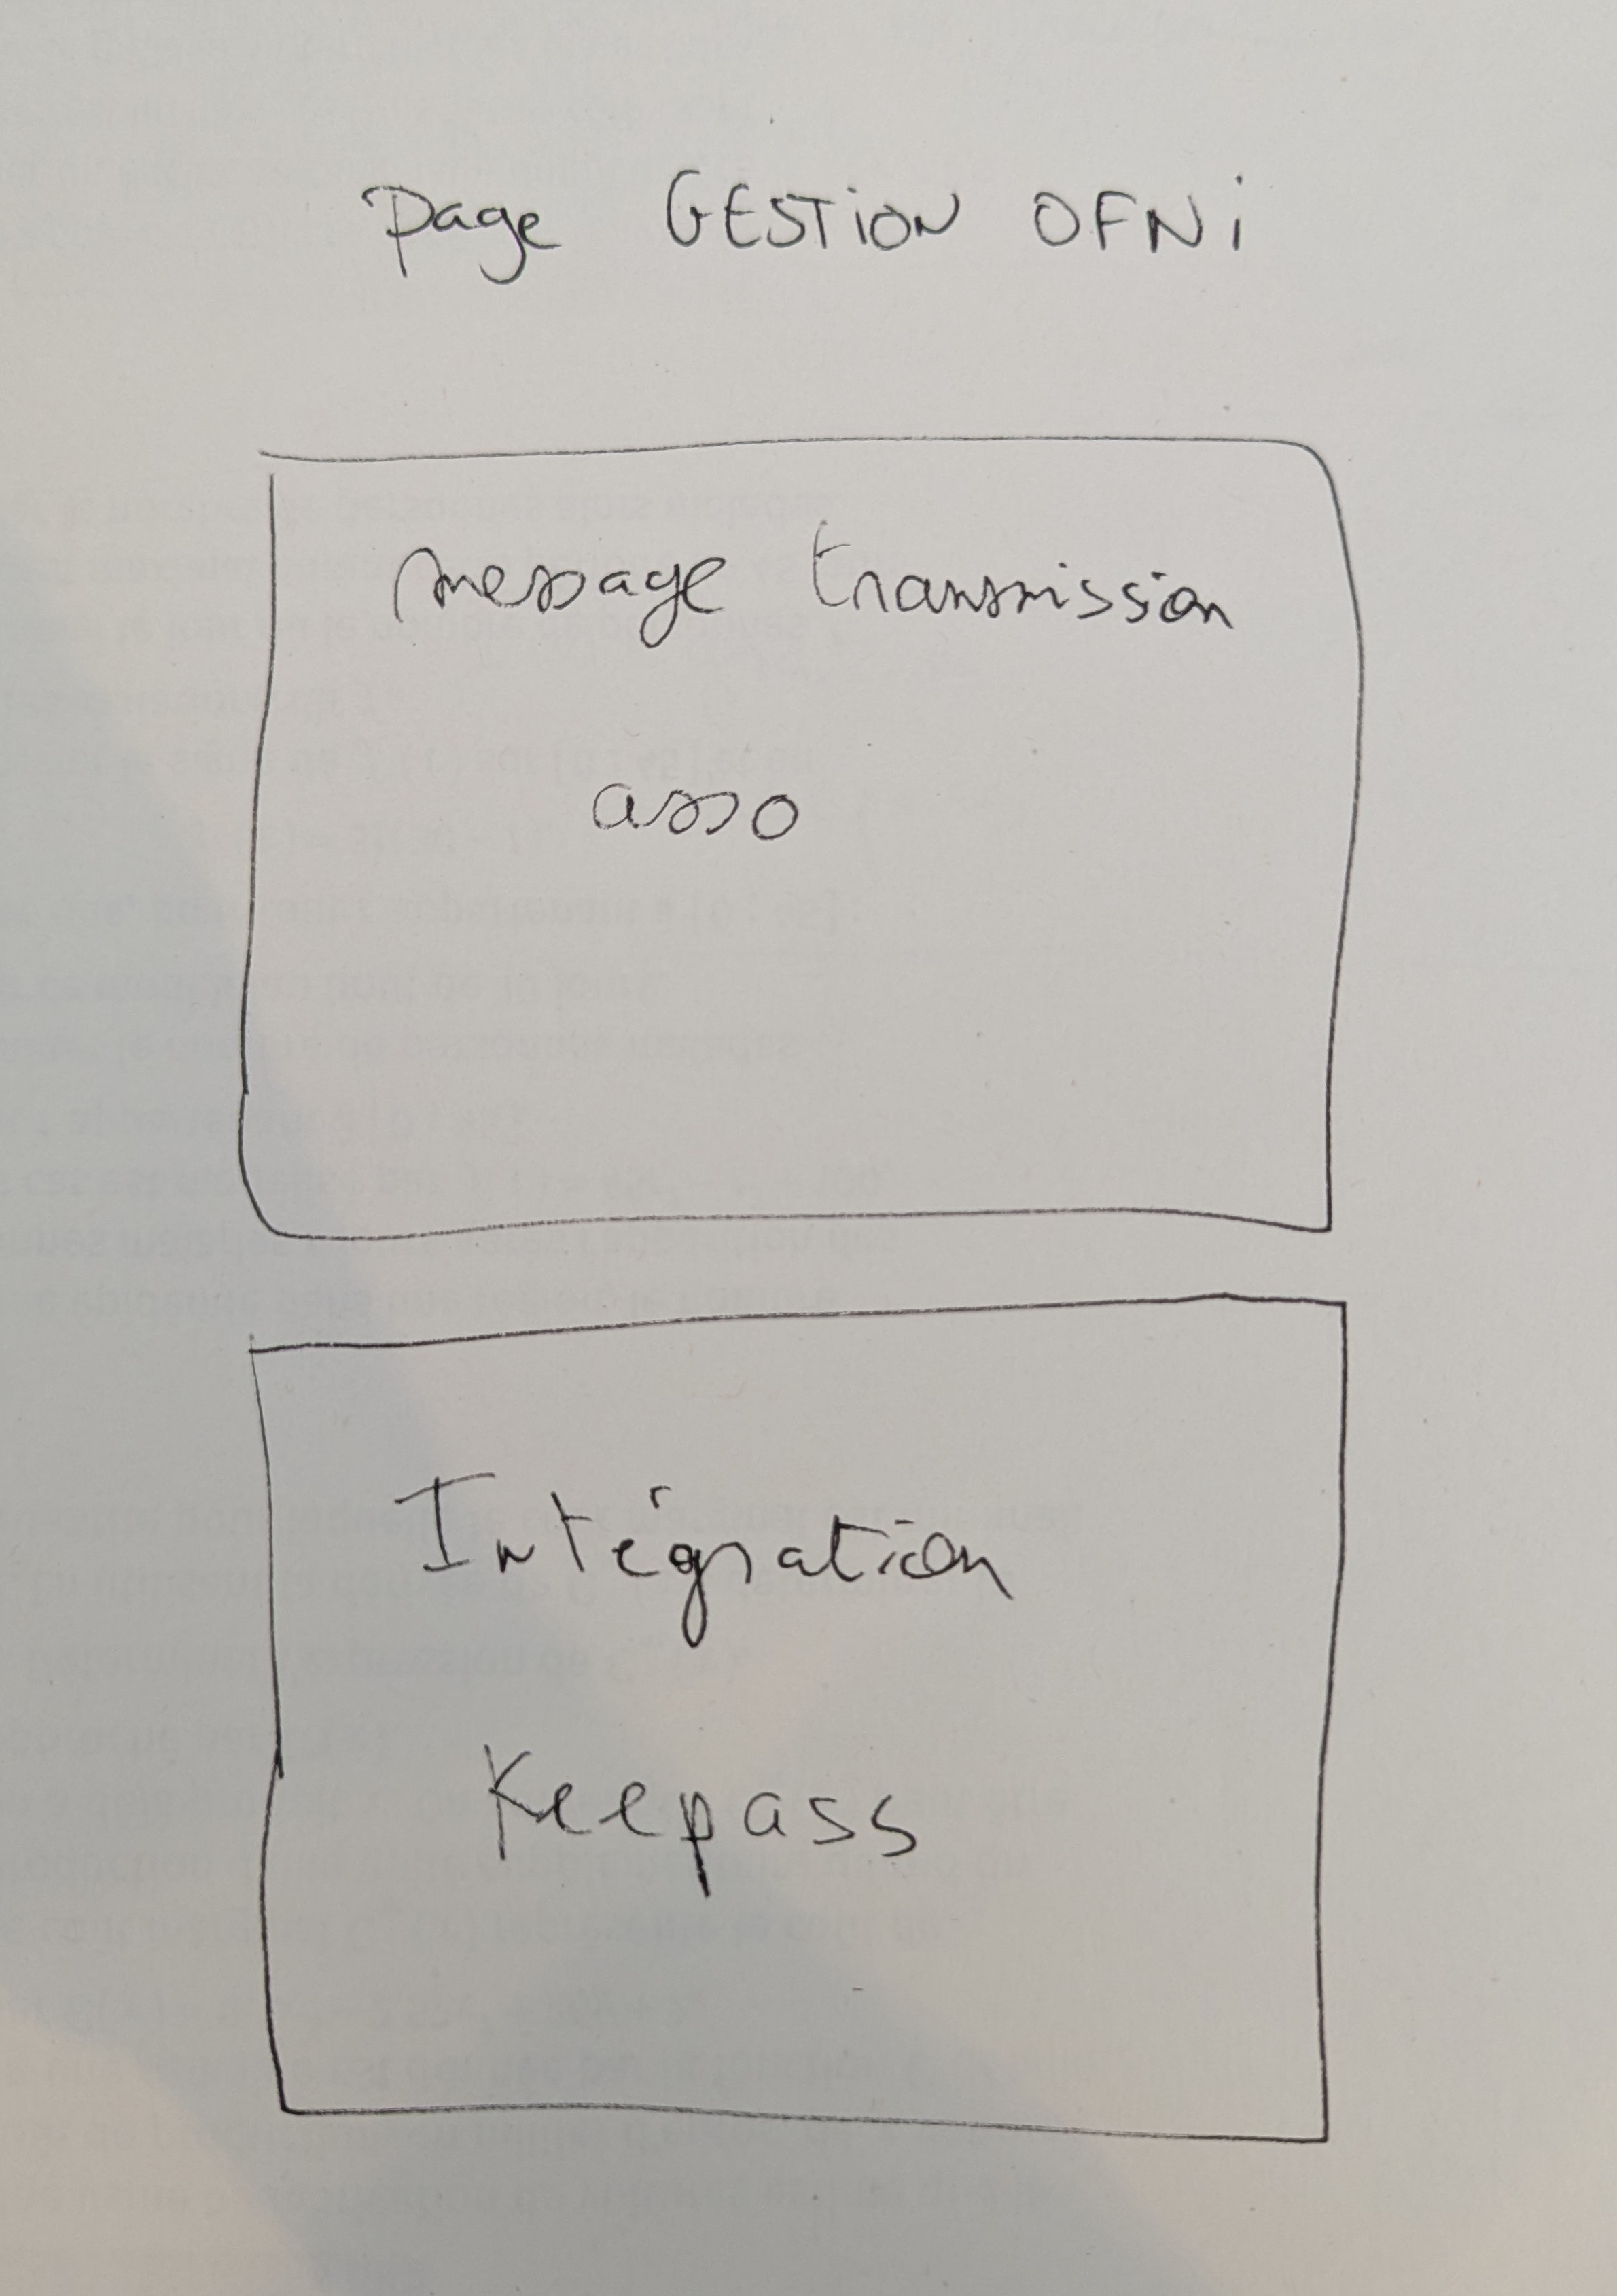 page GESTION OFNi
message transmission
asso
Intégration
Keepass